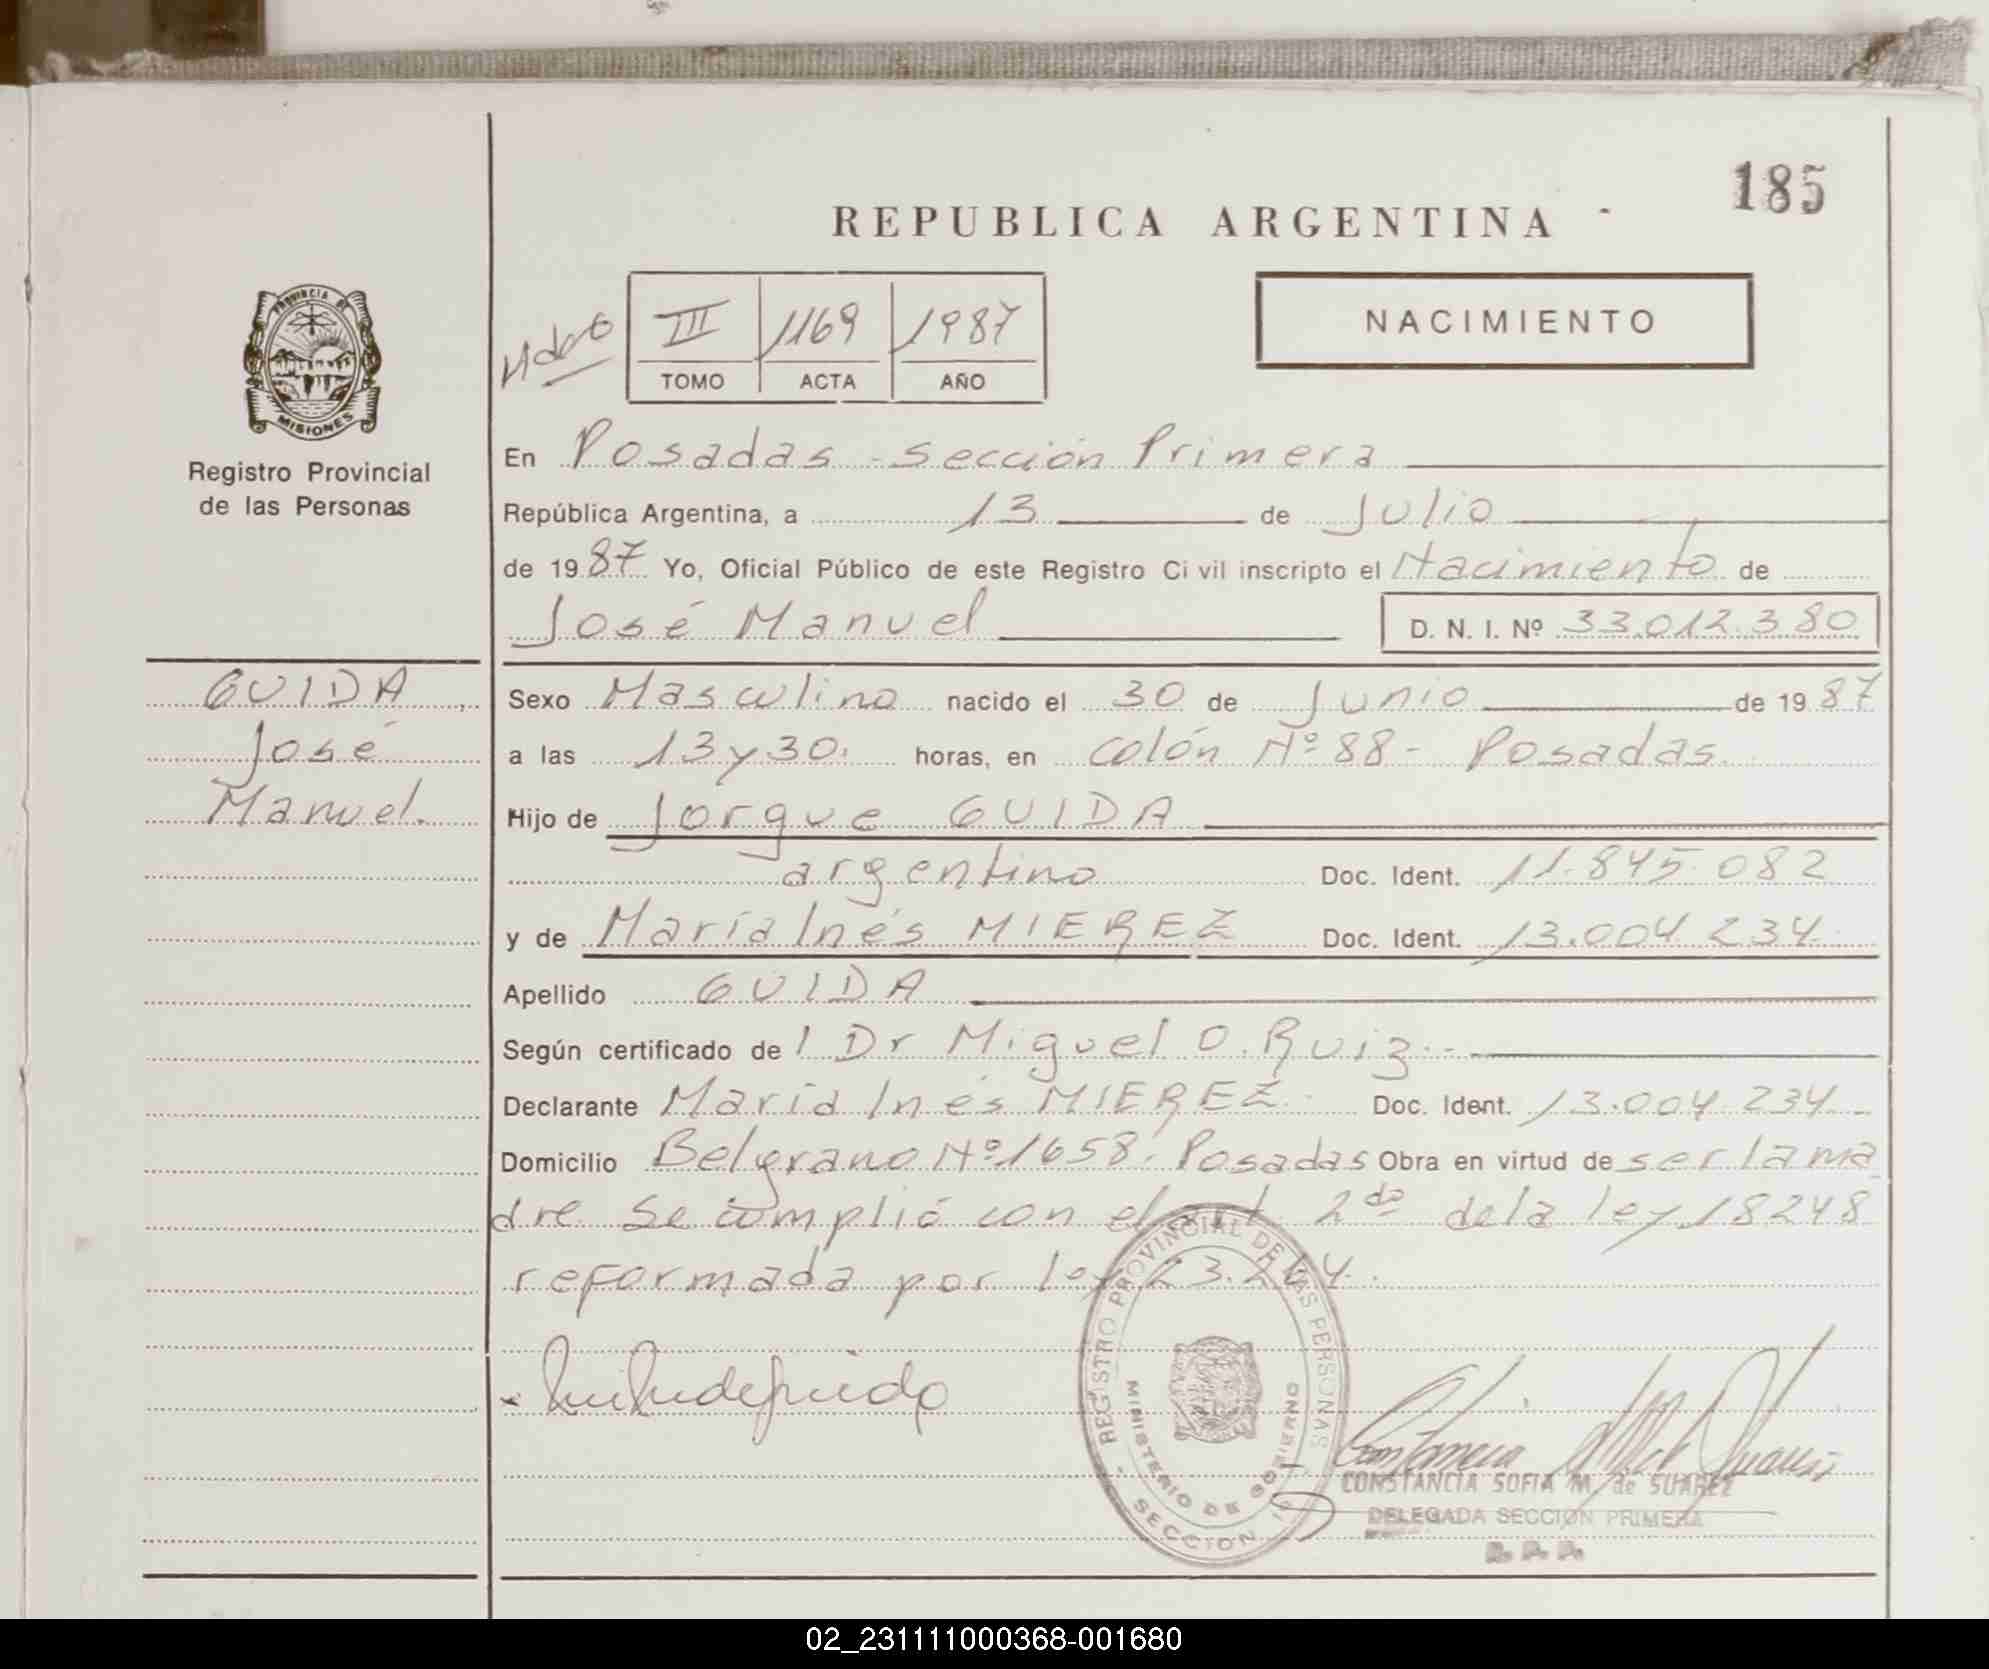 185
REPUBLICA ARGENTINA
PROVINCIA DE
MISIONES
Registro Provincial
de las Personas
III 1169 1987
TOMO ACTA AÑO
NACIMIENTO
En Posadas - sección Primera
República Argentina, a 13 de Julio
de 1987 Yo, Oficial Público de este Registro Ci vil inscripto el Nacimiento de
José Manuel D. N. I. Nº 33.012.380
GUIDA,
José
Manuel.
Sexo Masculino nacido el 30 de Junio de 1987
a las 13 y 30. horas, en colón Nº 88 - Posadas.
Hijo de Jorgue GUIDA
argentino Doc. Ident. 11.845.082
y de María Inés MIEREZ Doc. Ident. 13.004.234.
Apellido GUIDA
Según certificado de l Dr Miguel O. Ruiz.-
Declarante María Inés MIEREZ. Doc. Ident. 13.004.234.-
Domicilio Belgrano Nº 1658. Posadas Obra en virtud de ser la ma
dre. Se cumplió con el art. 2do de la ley 18248
reformada por ley 23.264.
REGISTRO PROVINCIAL DE LAS PERSONAS
MINISTERIO DE GOBIERNO
SECCION 1ª
CONSTANCIA SOFIA M. de SUAREZ
DELEGADA SECCION PRIMERA
R. P. P.
02_231111000368-001680